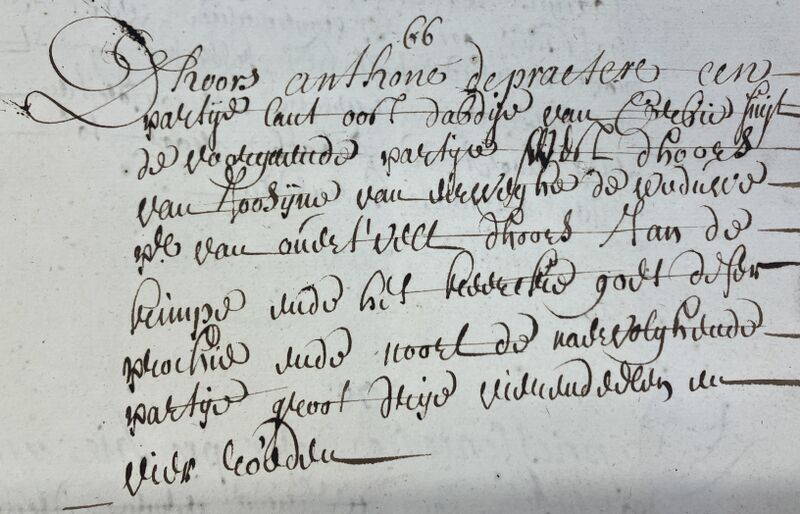 66
Dhoors anthone depraetere een
partije lant oost dabdije van Corbie suijt
de voorgaende partije West dhoors
van Joosijne van derweghe de weduwe
van overtvelt dhoors Jan de
kimpe ende het kercke goet deser
prochie ende noort de naervolghende
partije groot drije vierendeelen en
vier roeden